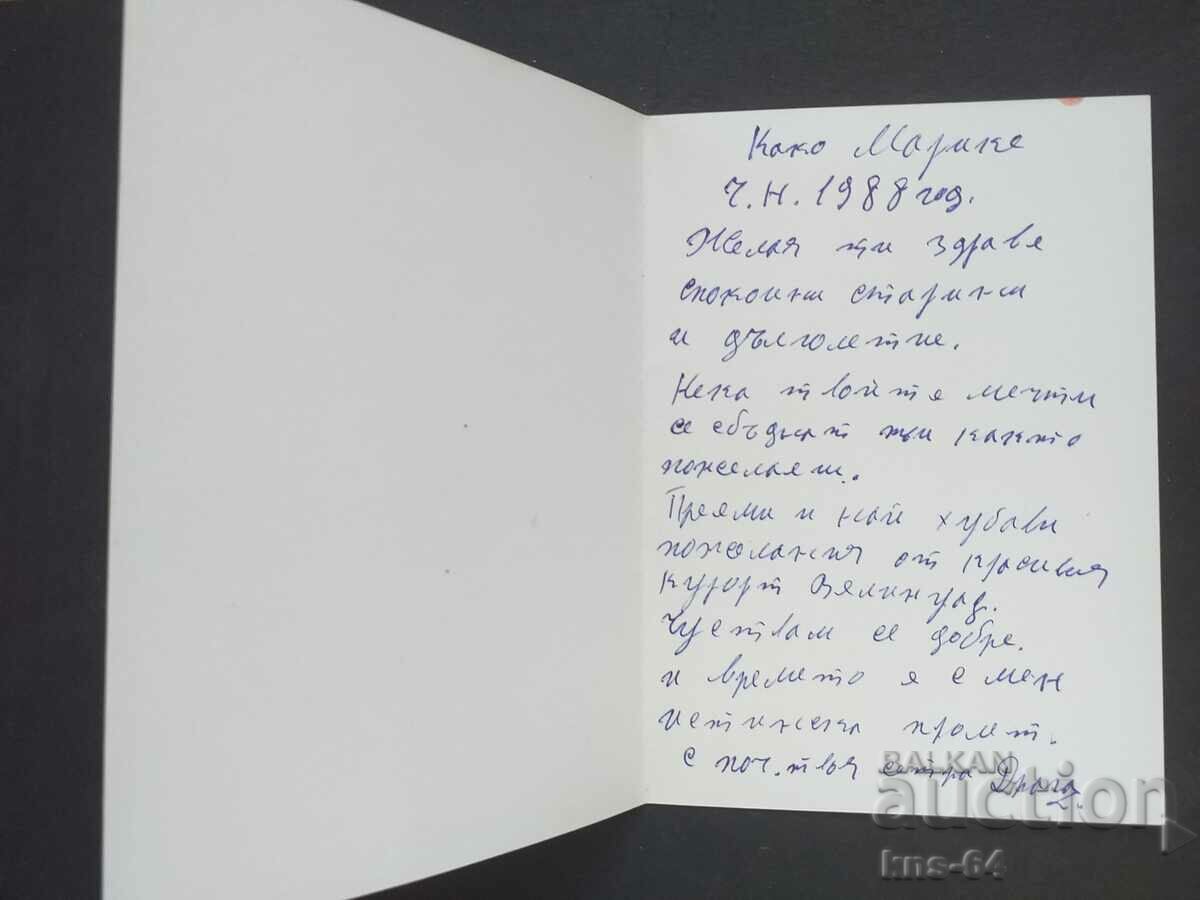 Како Марике
Ч.Н. 1988 год.
Желая ти здраве
спокоини старини
и дълголетие.
Нека твоите мечти
се сбъднат тъи както
пожелаеш.
Преями и най хубави
пожелания от красивия
курорт Вялинград.
Чуствам се добре.
и времето я с мен
истинска пролет.
с поч. твоя сестра Драга
BALKAN
auction
kns-64